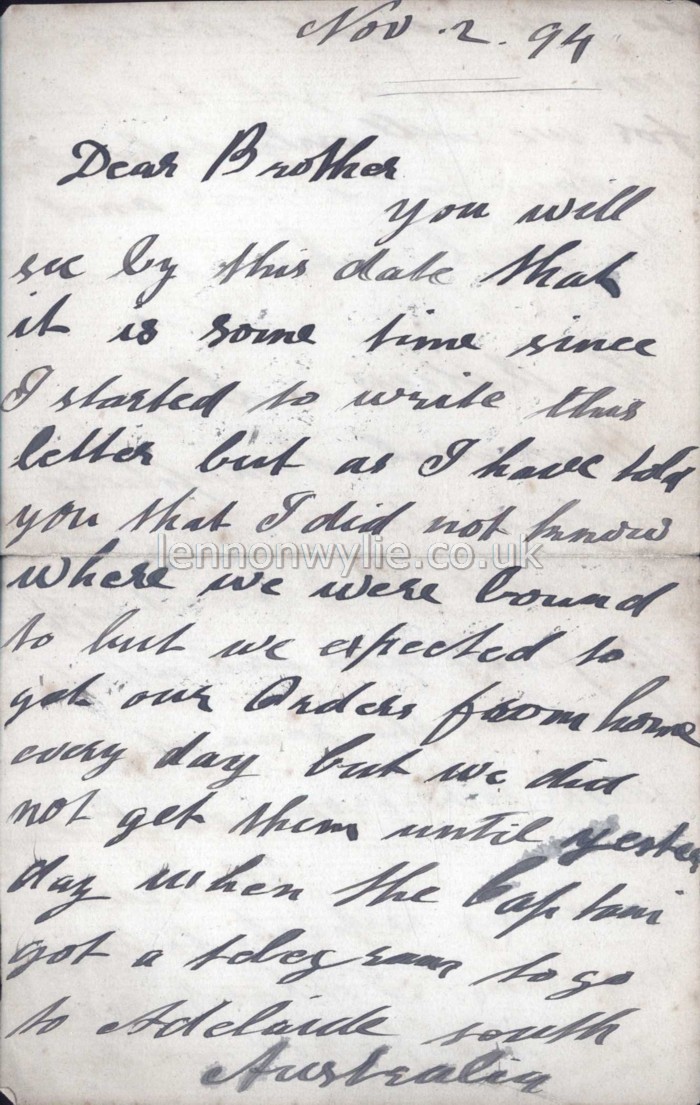 Nov. 2. 94
Dear Brother
you will
see by this date that
it is some time since
I started to write this
letter but as I have told
you that I did not know
lennonwylie.co.uk
where we were bound
to but we expected to
get our Orders from home
every day but we did
not get them until yester
day when the Captain
got a telegram to go
to Adelaide south
Australia